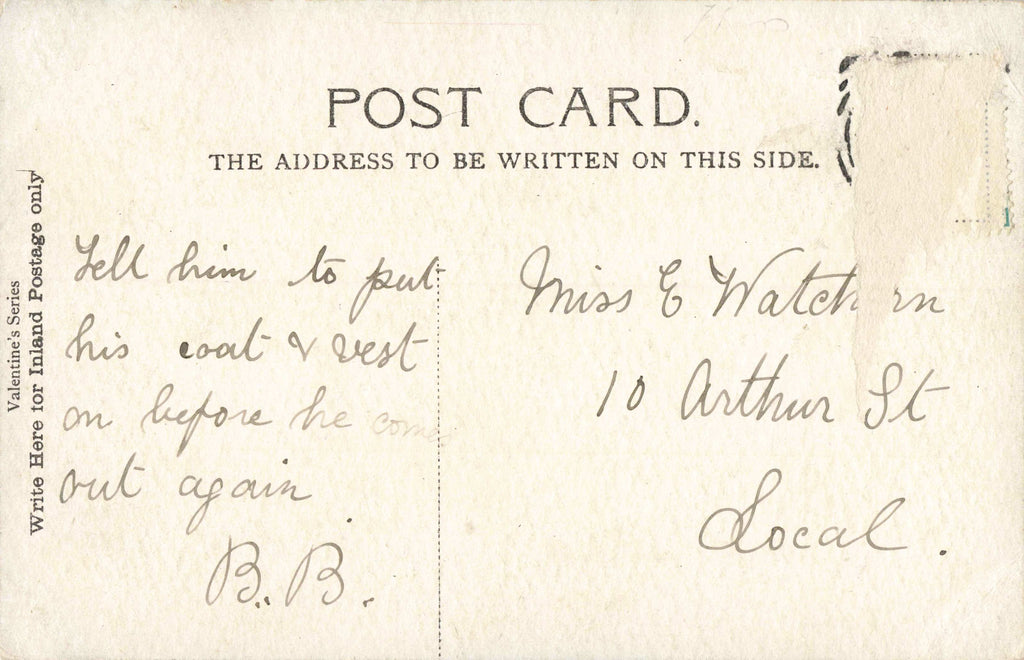 POST CARD.
THE ADDRESS TO BE WRITTEN ON THIS SIDE.
Valentine's Series
Write Here for Inland Postage only
Tell him to put
his coat & vest
on before he comes
out again
B. B.
Miss E
10 Arthur St
Local.
1